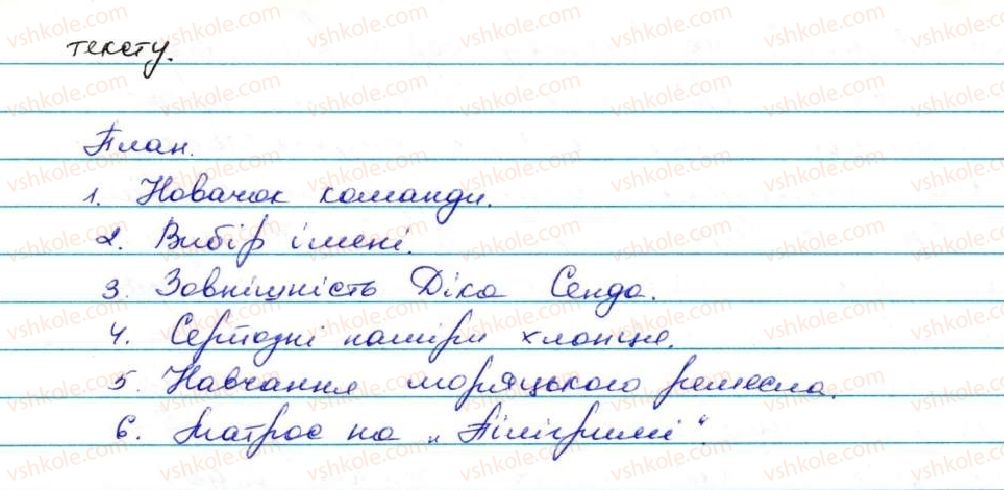 тексту.
План.
1. Новачок команди.
2. Вибір імені.
3. Зовнішність Діка Сенда.
4. Серйозні наміри хлопця.
5. Навчання моряцького ремесла.
6. Матрос на „Пілігримі“.